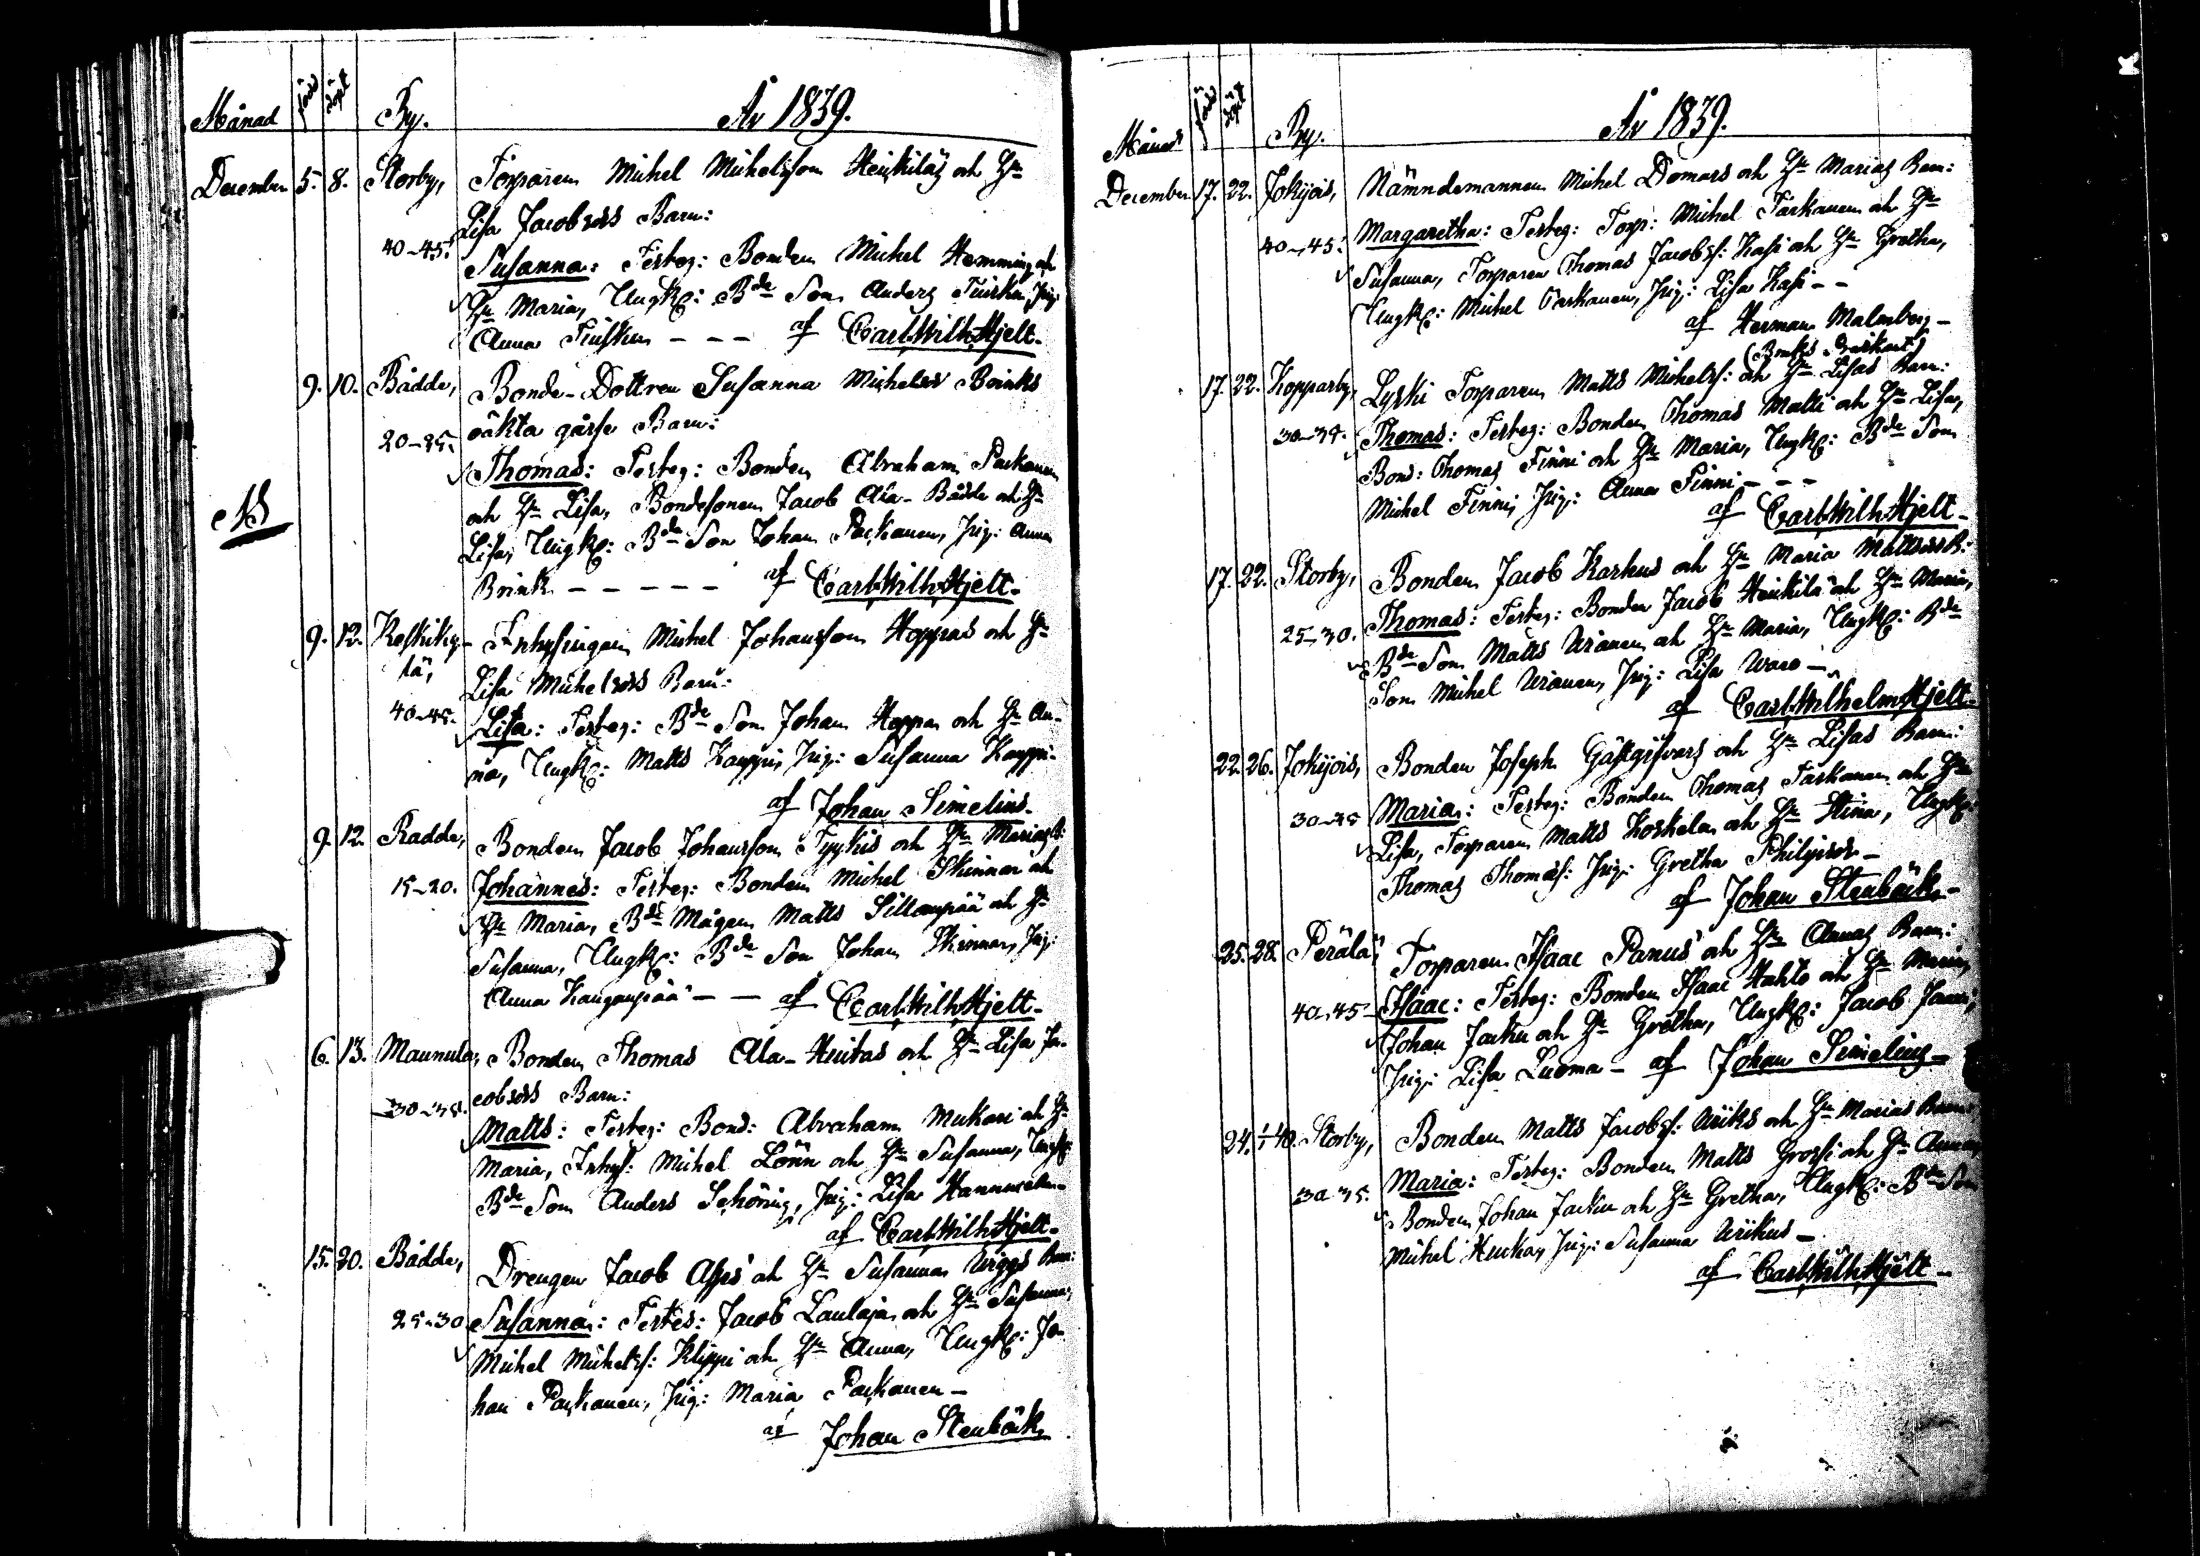 Månad född döpt By. År 1839.
December 5. 8. Storby, Torparen Michel Michelsson Heickiläs och H:u
Lisa Jacobsdrs Barn:
40-45. Susanna: Testeg: Bonden Michel Hemming och
H:u Maria, Ungk: Bde Son Anders Tuiska, Pig:
Anna Tuisku - - - af Carl Wilh. Hjelt.
9. 10. Bådde, Bonde-Dottren Susanna Michelsdr Brinks
20-25. oäkta gosse Barn:
Thomas: Testeg: Bonden Abraham Packanen
och H:u Lisa, Bondesonen Jacob Ala-Bådde och H:u
Lisa, Ungk: Bde Son Johan Packanen, Pig: Anna
Brink - - - - - af Carl Wilh. Hjelt.
9. 12. Koskikylä, Inhysingen Michel Johansson Hoppas och H:u
Lisa Michelsdrs Barn:
40-45. Lisa: Testeg: Bde Son Johan Hoppa och H:u An-
na, Ungk: Matts Kauppi, Pig: Susanna Kauppi.
af Johan Simelius.
9. 12. Radde, Bonden Jacob Johansson Tyykis och H:u Marias B:
15-20. Johannes: Testeg: Bonden Michel Skinnar och
H:u Maria, Bde Mågen Matts Sillanpää och H:u
Susanna, Ungk: Bde Son Johan Skinnar, Pig:
Anna Kanganpää - - af Carl Wilh. Hjelt.
6. 13. Maunula, Bonden Thomas Ala-Huitas och H:u Lisa Ja-
30-35. cobsdrs Barn:
Matts: Testeg: Bond: Abraham Mukari och H:u
Maria, Inhys: Michel Lönn och H:u Susanna, Ungk:
Bde Son Anders Schöring, Pig: Lisa Hannuxela
af Carl Wilh. Hjelt.
15. 20. Bådde, Drengen Jacob och H:u Susanna Barn:
25-30 Susanna: Testes: Jacob Laulaja och H:u Susanna,
Michel Michelss: Klippi och H:u Anna, Ungk: Jo-
han Packanen, Pig: Maria Packanen -
af Johan Stenbäck
Månad född döpt By. År 1839.
December 17. 22. Jokipis, Nämndemannen Michel Domars och H:u Marias Barn:
40-45. Margaretha: Testeg: Torp: Michel Taskanen och H:u
Susanna, Torparen Thomas Jacobss: Kasi och H:u Gretha,
Ungk: Michel Taskanen, Pig: Lisa Kasi - -
af Herman Malmberg -
17. 22. Kopparby, Lyski Torparen Matts Michelss: och H:u Lisas Barn:
30-35. Thomas: Testeg: Bonden Thomas Matti och H:u Lisa,
Bond: Thomas Finni och H:u Maria, Ungk: Bde Son
Michel Finni, Pig: Anna Finni - - -
af Carl Wilh. Hjelt -
17. 22. Storby, Bonden Jacob Karhus och H:u Maria Mattsdrs B:
25-30. Thomas: Testeg: Bonden Jacob Heikilä och H:u Maria,
Bde Son Matts Uränen och H:u Maria, Ungk: Bde
Son Michel Uränen, Pig: Lisa Waro -
af Carl Wilhelm Hjelt.
22. 26. Jokipis, Bonden Joseph Gästgifvars och H:u Lisas Barn:
30-35 Maria: Testeg: Bonden Thomas Taskanen och H:u
Lisa, Torparen Matts Koskela och H:u Stina, Ungk:
Thomas Thomass: Pig: Gretha Philipsdr -
af Johan Stenbäck -
25. 28. Perälä, Torparen Isaac Panus och H:u Annas Barn:
40-45 Isaac: Testeg: Bonden Isaac Hahto och H:u Maria,
Johan Jasku och H:u Gretha, Ungk: Jacob
Pig: Lisa Luoma - af Johan Simelius -
24. 1/1 40. Storby, Bonden Matts Jacobss: Uriks och H:u Marias Barn:
30 35. Maria: Testeg: Bonden Matts Grossi och H:u Anna,
Bonden Johan Jasku och H:u Gretha, Ungk: Bde Son
Michel Hucka, Pig: Susanna Urikus -
af Carl Wilh. Hjelt -